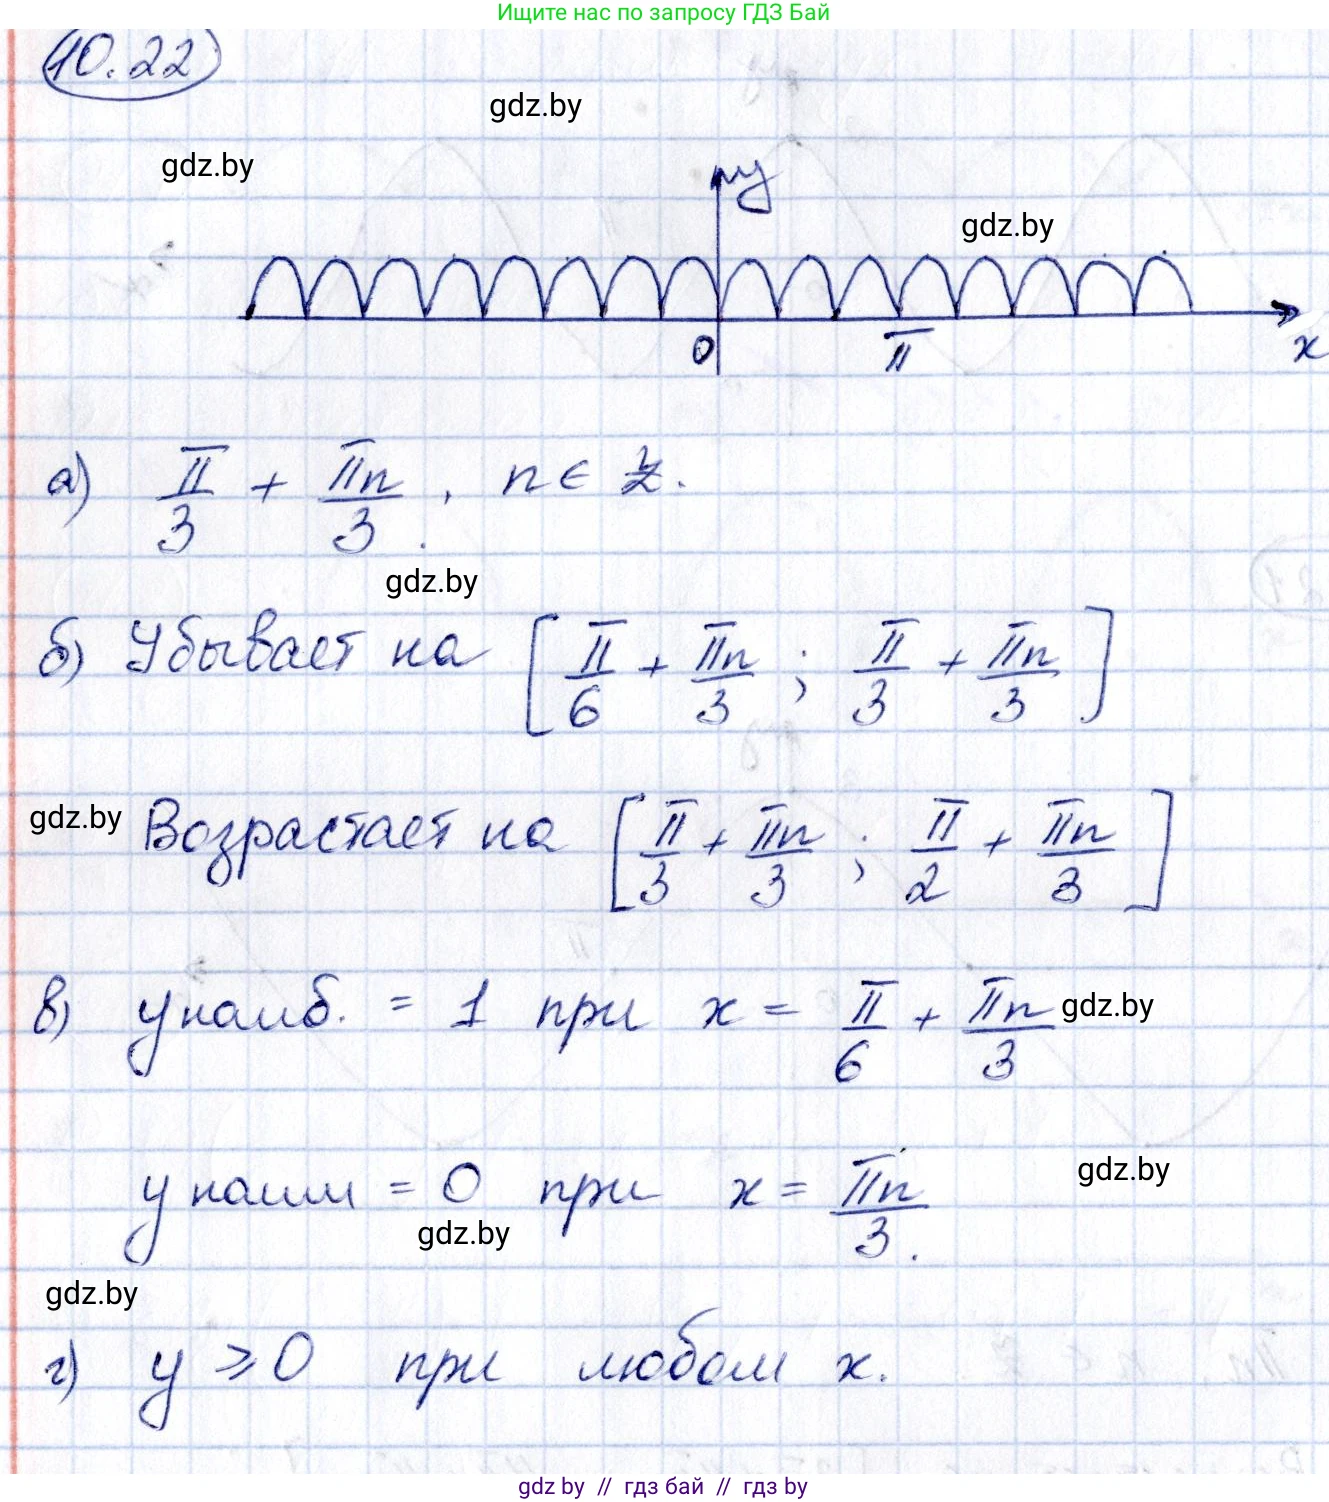 Ищите нас по запросу ГДЗ Бай
10.22
gdz.by
gdz.by
y
gdz.by
0 π x
а) π/3 + πn/3, n ∈ Z.
gdz.by
б) Убывает на [π/6 + πn/3; π/3 + πn/3]
gdz.by
Возрастает на [π/3 + πn/3; π/2 + πn/3]
в) y наиб. = 1 при x = π/6 + πn/3
gdz.by
y наим = 0 при x = πn/3.
gdz.by
gdz.by
gdz.by
г) y ⩾ 0 при любом x.
gdz by // гдз бай // гдз by